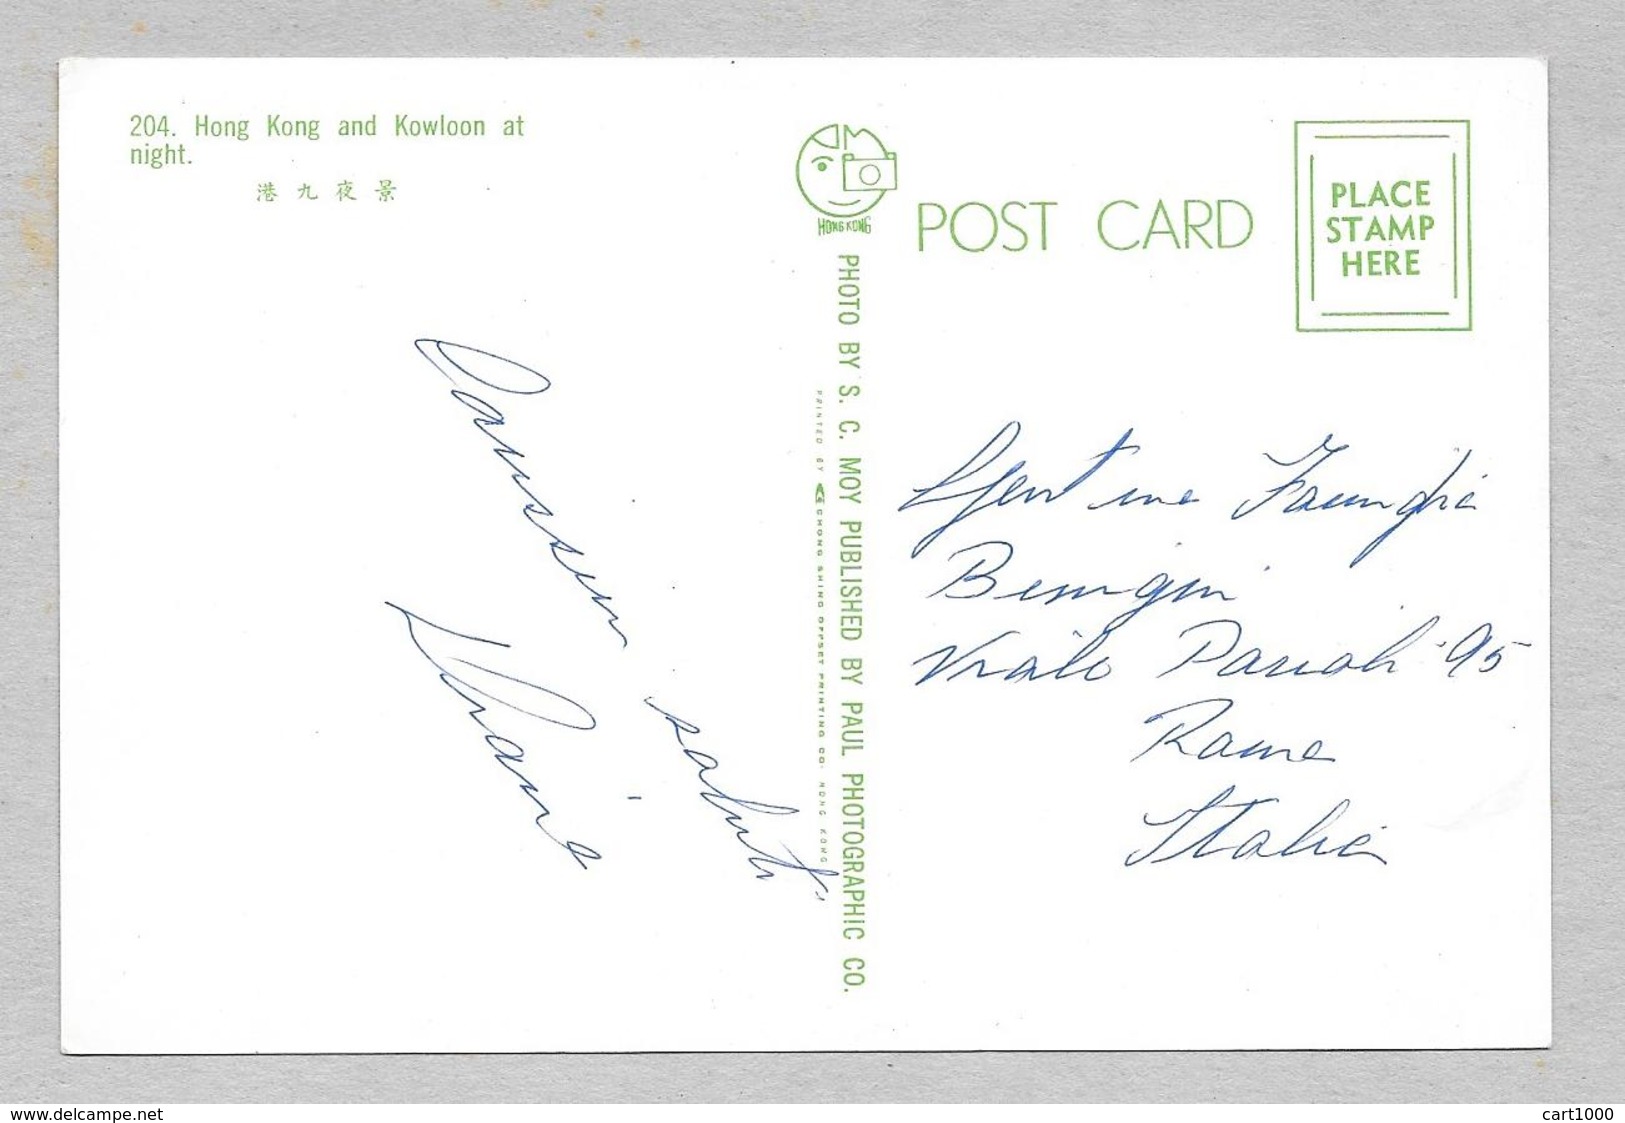 204. Hong Kong and Kowloon at
night.
港九夜景
HONG KONG
POST CARD
PLACE
STAMP
HERE
PHOTO BY S. C. MOY PUBLISHED BY PAUL PHOTOGRAPHIC CO.
PRINTED BY CHONG SHING OFFSET PRINTING CO. HONG KONG
Carissimi saluti
Gent me Famiglia
Benigni
Viale Parioli 95
Roma
Italia
www.delcampe.net
cart1000